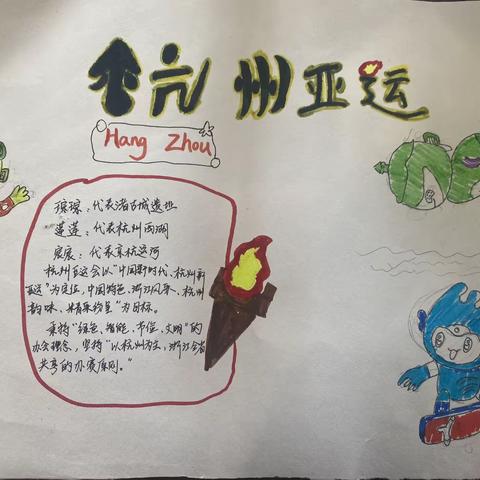 杭州亚运
Hang Zhou
琮琮：代表诸古城遗址
莲莲：代表杭州西湖
宸宸：代表京杭运河
杭州亚运会以"中国新时代、杭州新
亚运"为定位，中国特色、浙江风采、杭州
韵味、精彩纷呈"为目标。
秉持"绿色、智能、节俭、文明"的
办会理念，坚持"以杭州为主，浙江全省
共享的办赛原则。"